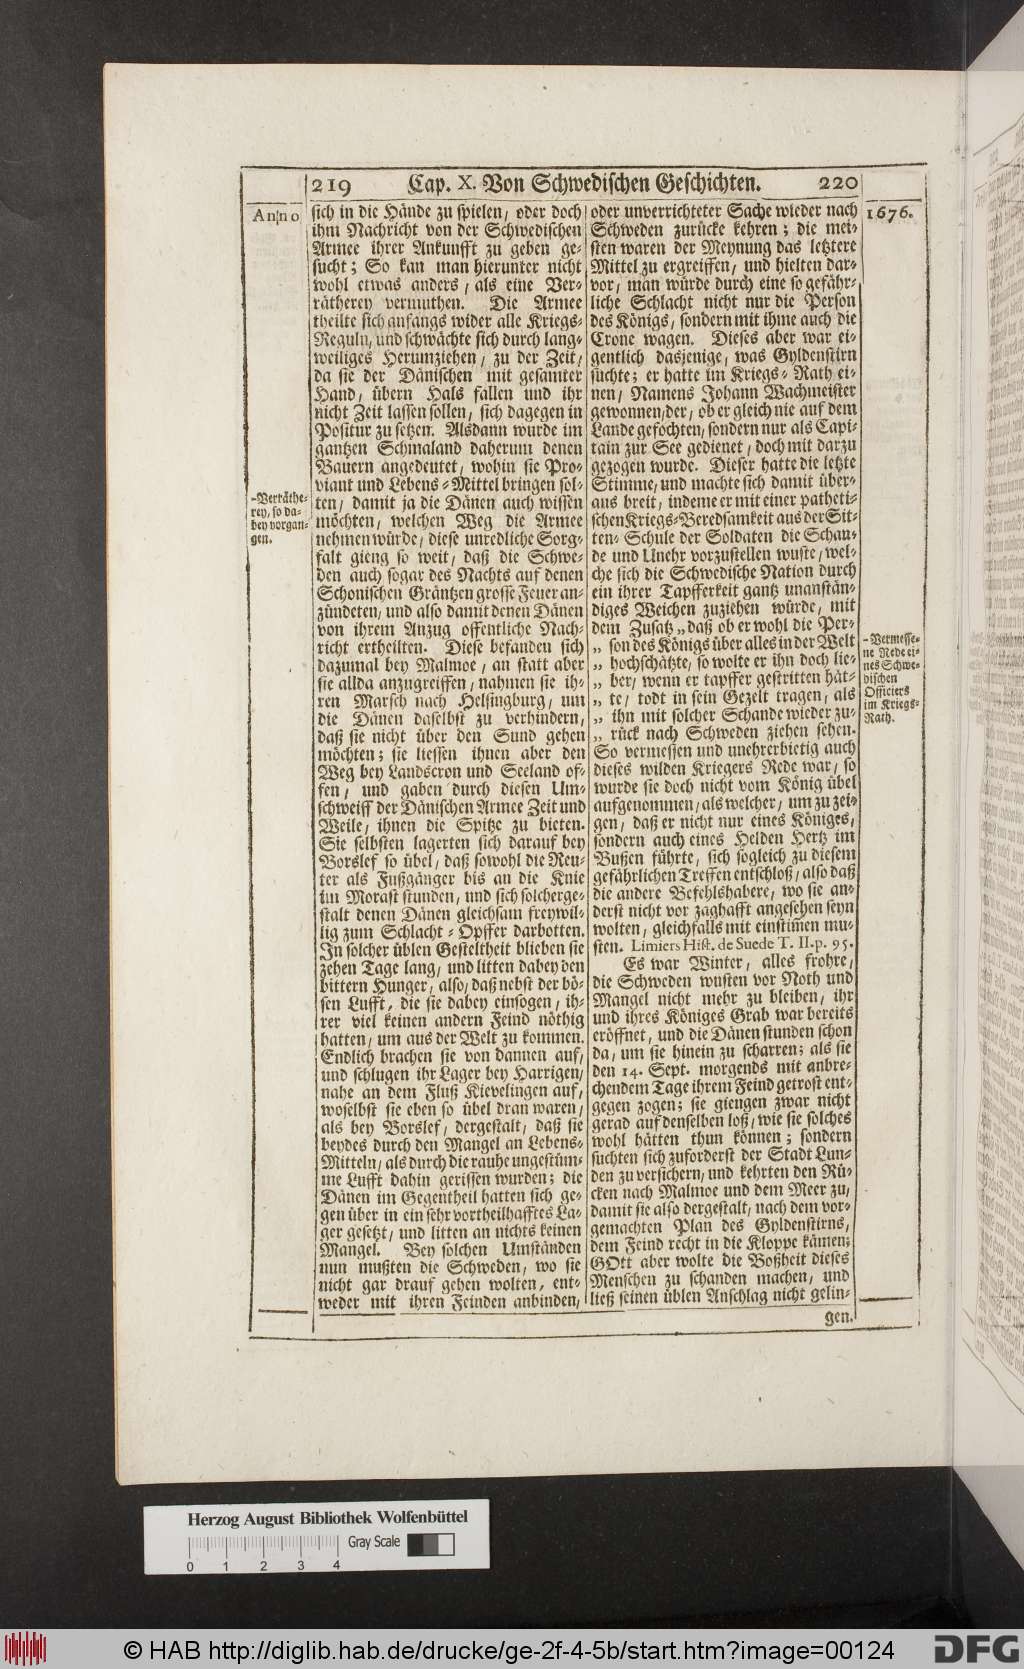 219 Cap. X. Von Schwedischen Geschichten. 220
Anno
sich in die Hände zu spielen, oder doch
ihm Nachricht von der Schwedischen
Armee ihrer Ankunfft zu geben ge-
sucht; So kan man hierunter nicht
wohl etwas anders, als eine Ver-
rätherey vermuthen. Die Armee
theilte sich anfangs wider alle Kriegs-
Reguln, und schwächte sich durch lang-
weiliges Herumziehen, zu der Zeit,
da sie der Dänischen mit gesamter
Hand, übern Hals fallen und ihr
nicht Zeit lassen sollen, sich dagegen in
Positur zu setzen. Alsdann wurde im
gantzen Schmaland daherum denen
Bauern angedeutet, wohin sie Pro-
viant und Lebens-Mittel bringen sol-
ten, damit ja die Dänen auch wissen
möchten, welchen Weg die Armee
nehmen würde, diese unredliche Sorg-
falt gieng so weit, daß die Schwe-
den auch sogar des Nachts auf denen
Schonischen Gräntzen grosse Feuer an-
zündeten, und also damit denen Dänen
von ihrem Anzug offentliche Nach-
richt ertheilten. Diese befanden sich
dazumal bey Malmoe, an statt aber
sie allda anzugreiffen, nahmen sie ih-
ren Marsch nach Helsingburg, um
die Dänen daselbst zu verhindern,
daß sie nicht über den Sund gehen
möchten; sie liessen ihnen aber den
Weg bey Landscron und Seeland of-
fen, und gaben durch diesen Um-
schweiff der Dänischen Armee Zeit und
Weile, ihnen die Spitze zu bieten.
Sie selbsten lagerten sich darauf bey
Borslef so übel, daß sowohl die Reu-
ter als Fußgänger bis an die Knie
im Morast stunden, und sich solcherge-
stalt denen Dänen gleichsam freywil-
lig zum Schlacht-Opffer darbotten.
In solcher üblen Gesteltheit blieben sie
zehen Tage lang, und litten dabey den
bittern Hunger, also, daß nebst der bö-
sen Lufft, die sie dabey einsogen, ih-
rer viel keinen andern Feind nöthig
hatten, um aus der Welt zu kommen.
Endlich brachen sie von dannen auf,
und schlugen ihr Lager bey Harrigen,
nahe an dem Fluß Kievelingen auf,
woselbst sie eben so übel dran waren,
als bey Borslef, dergestalt, daß sie
beydes durch den Mangel an Lebens-
Mitteln, als durch die rauhe ungestüm-
me Lufft dahin gerissen wurden; die
Dänen im Gegentheil hatten sich ge-
gen über in ein sehr vortheilhafftes La-
ger gesetzt, und litten an nichts keinen
Mangel. Bey solchen Umständen
nun mußten die Schweden, wo sie
nicht gar drauf gehen wolten, ent-
weder mit ihren Feinden anbinden,
-Verräthe-
rey, so da-
bey vorgan-
gen.
oder unverrichteter Sache wieder nach
Schweden zurücke kehren; die mei-
sten waren der Meynung das letztere
Mittel zu ergreiffen, und hielten dar-
vor, man würde durch eine so gefähr-
liche Schlacht nicht nur die Person
des Königs, sondern mit ihme auch die
Crone wagen. Dieses aber war ei-
gentlich dasjenige, was Gyldenstirn
suchte; er hatte im Kriegs-Rath ei-
nen, Namens Johann Wachmeister
gewonnen, der, ob er gleich nie auf dem
Lande gefochten, sondern nur als Capi-
tain zur See gedienet, doch mit darzu
gezogen wurde. Dieser hatte die letzte
Stimme, und machte sich damit über-
aus breit, indeme er mit einer patheti-
schen Kriegs-Beredsamkeit aus der Sit-
ten-Schule der Soldaten die Schan-
de und Unehr vorzustellen wuste, wel-
che sich die Schwedische Nation durch
ein ihrer Tapfferkeit gantz unanstän-
diges Weichen zuziehen würde, mit
dem Zusatz „daß ob er wohl die Per-
„ son des Königs über alles in der Welt
„ hochschätzte, so wolte er ihn doch lie-
„ ber, wenn er tapffer gestritten hät-
„ te, todt in sein Gezelt tragen, als
„ ihn mit solcher Schande wieder zu-
„ rück nach Schweden ziehen sehen.
So vermessen und unehrerbietig auch
dieses wilden Kriegers Rede war, so
wurde sie doch nicht vom König übel
aufgenommen, als welcher, um zu zei-
gen, daß er nicht nur eines Königes,
sondern auch eines Helden Hertz im
Bußen führte, sich sogleich zu diesem
gefährlichen Treffen entschloß, also daß
die andere Befehlshabere, wo sie an-
derst nicht vor zaghafft angesehen seyn
wolten, gleichfalls mit einstimen mu-
sten. Limiers Hist. de Suede T. II. p. 95.
Es war Winter, alles frohre,
die Schweden wusten vor Noth und
Mangel nicht mehr zu bleiben, ihr
und ihres Königes Grab war bereits
eröffnet, und die Dänen stunden schon
da, um sie hinein zu scharren; als sie
den 14. Sept. morgends mit anbre-
chendem Tage ihrem Feind getrost ent-
gegen zogen; sie giengen zwar nicht
gerad auf denselben loß, wie sie solches
wohl hätten thun können; sondern
suchten sich zuforderst der Stadt Lun-
den zu versichern, und kehrten den Rü-
cken nach Malmoe und dem Meer zu,
damit sie also dergestalt, nach dem vor-
gemachten Plan des Gyldenstirns,
dem Feind recht in die Kloppe kämen;
GOtt aber wolte die Boßheit dieses
Menschen zu schanden machen, und
ließ seinen üblen Anschlag nicht gelin-
gen.
1676.
-Vermesse-
ne Rede ei-
nes Schwe-
dischen
Officiers
im Kriegs-
Rath.
Herzog August Bibliothek Wolfenbüttel
0 1 2 3 4
Gray Scale
© HAB http://diglib.hab.de/drucke/ge-2f-4-5b/start.htm?image=00124
DFG